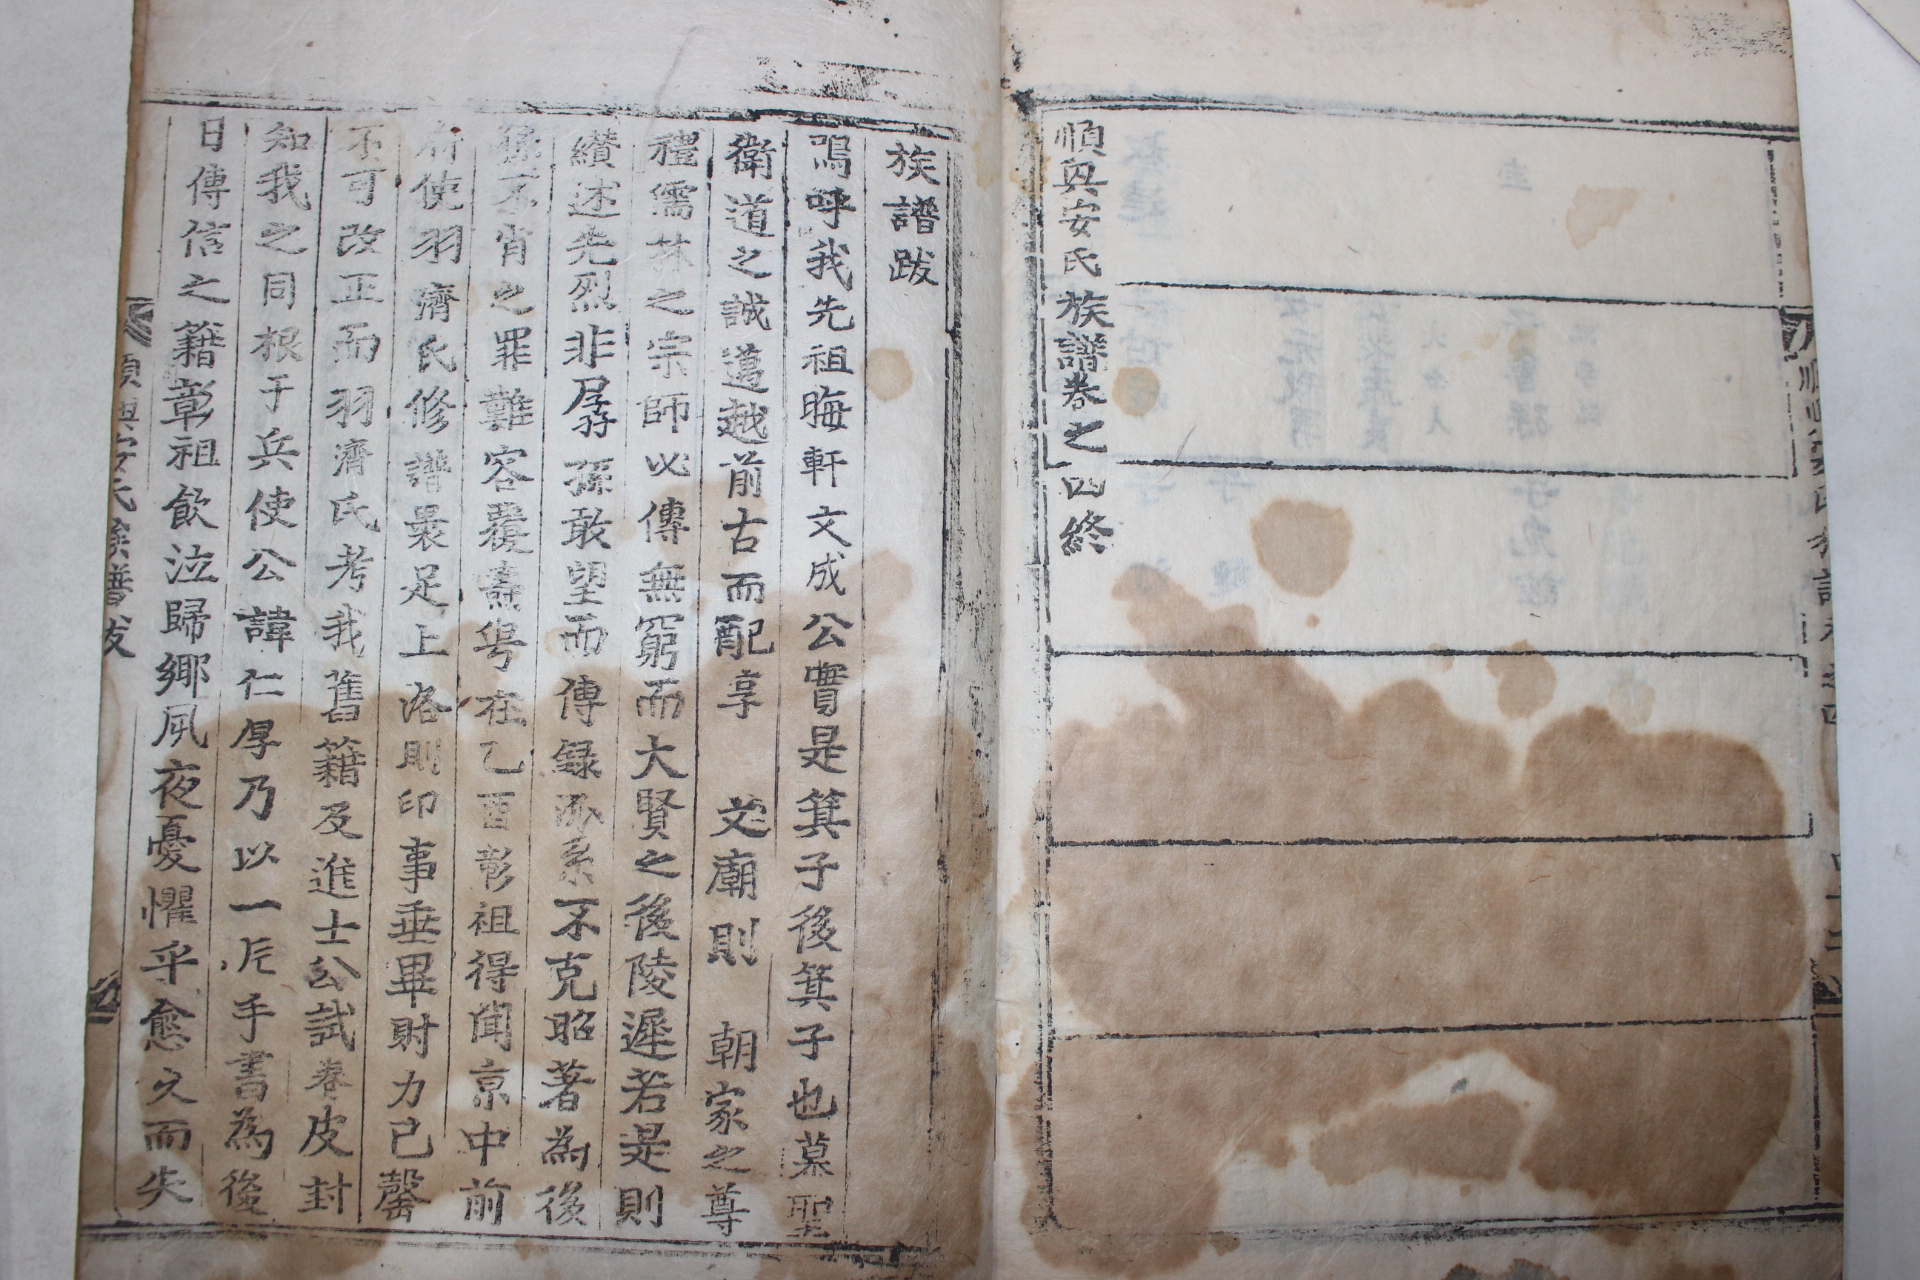 順興安氏族譜卷之四終
族譜跋
嗚呼我先祖晦軒文成公實是箕子後箕子也慕聖
衛道之誠邁越前古而配享 文廟則 朝家之尊
禮儒林之宗師必傳無窮而大賢之後陵遲若是則
纘述先烈非孱孫敢望而傳錄派系不克昭著為後
孫不肖之罪難容覆燾粤在乙酉彰祖得聞京中前
府使羽濟氏修譜畏足上洛則印事垂畢財力已罄
不可改正而羽濟氏考我舊籍及進士公試卷皮封
知我之同根于兵使公諱仁厚乃以一片手書為後
日傳信之籍彰祖飲泣歸鄉夙夜憂懼乎愈久而失
順興安氏族譜跋